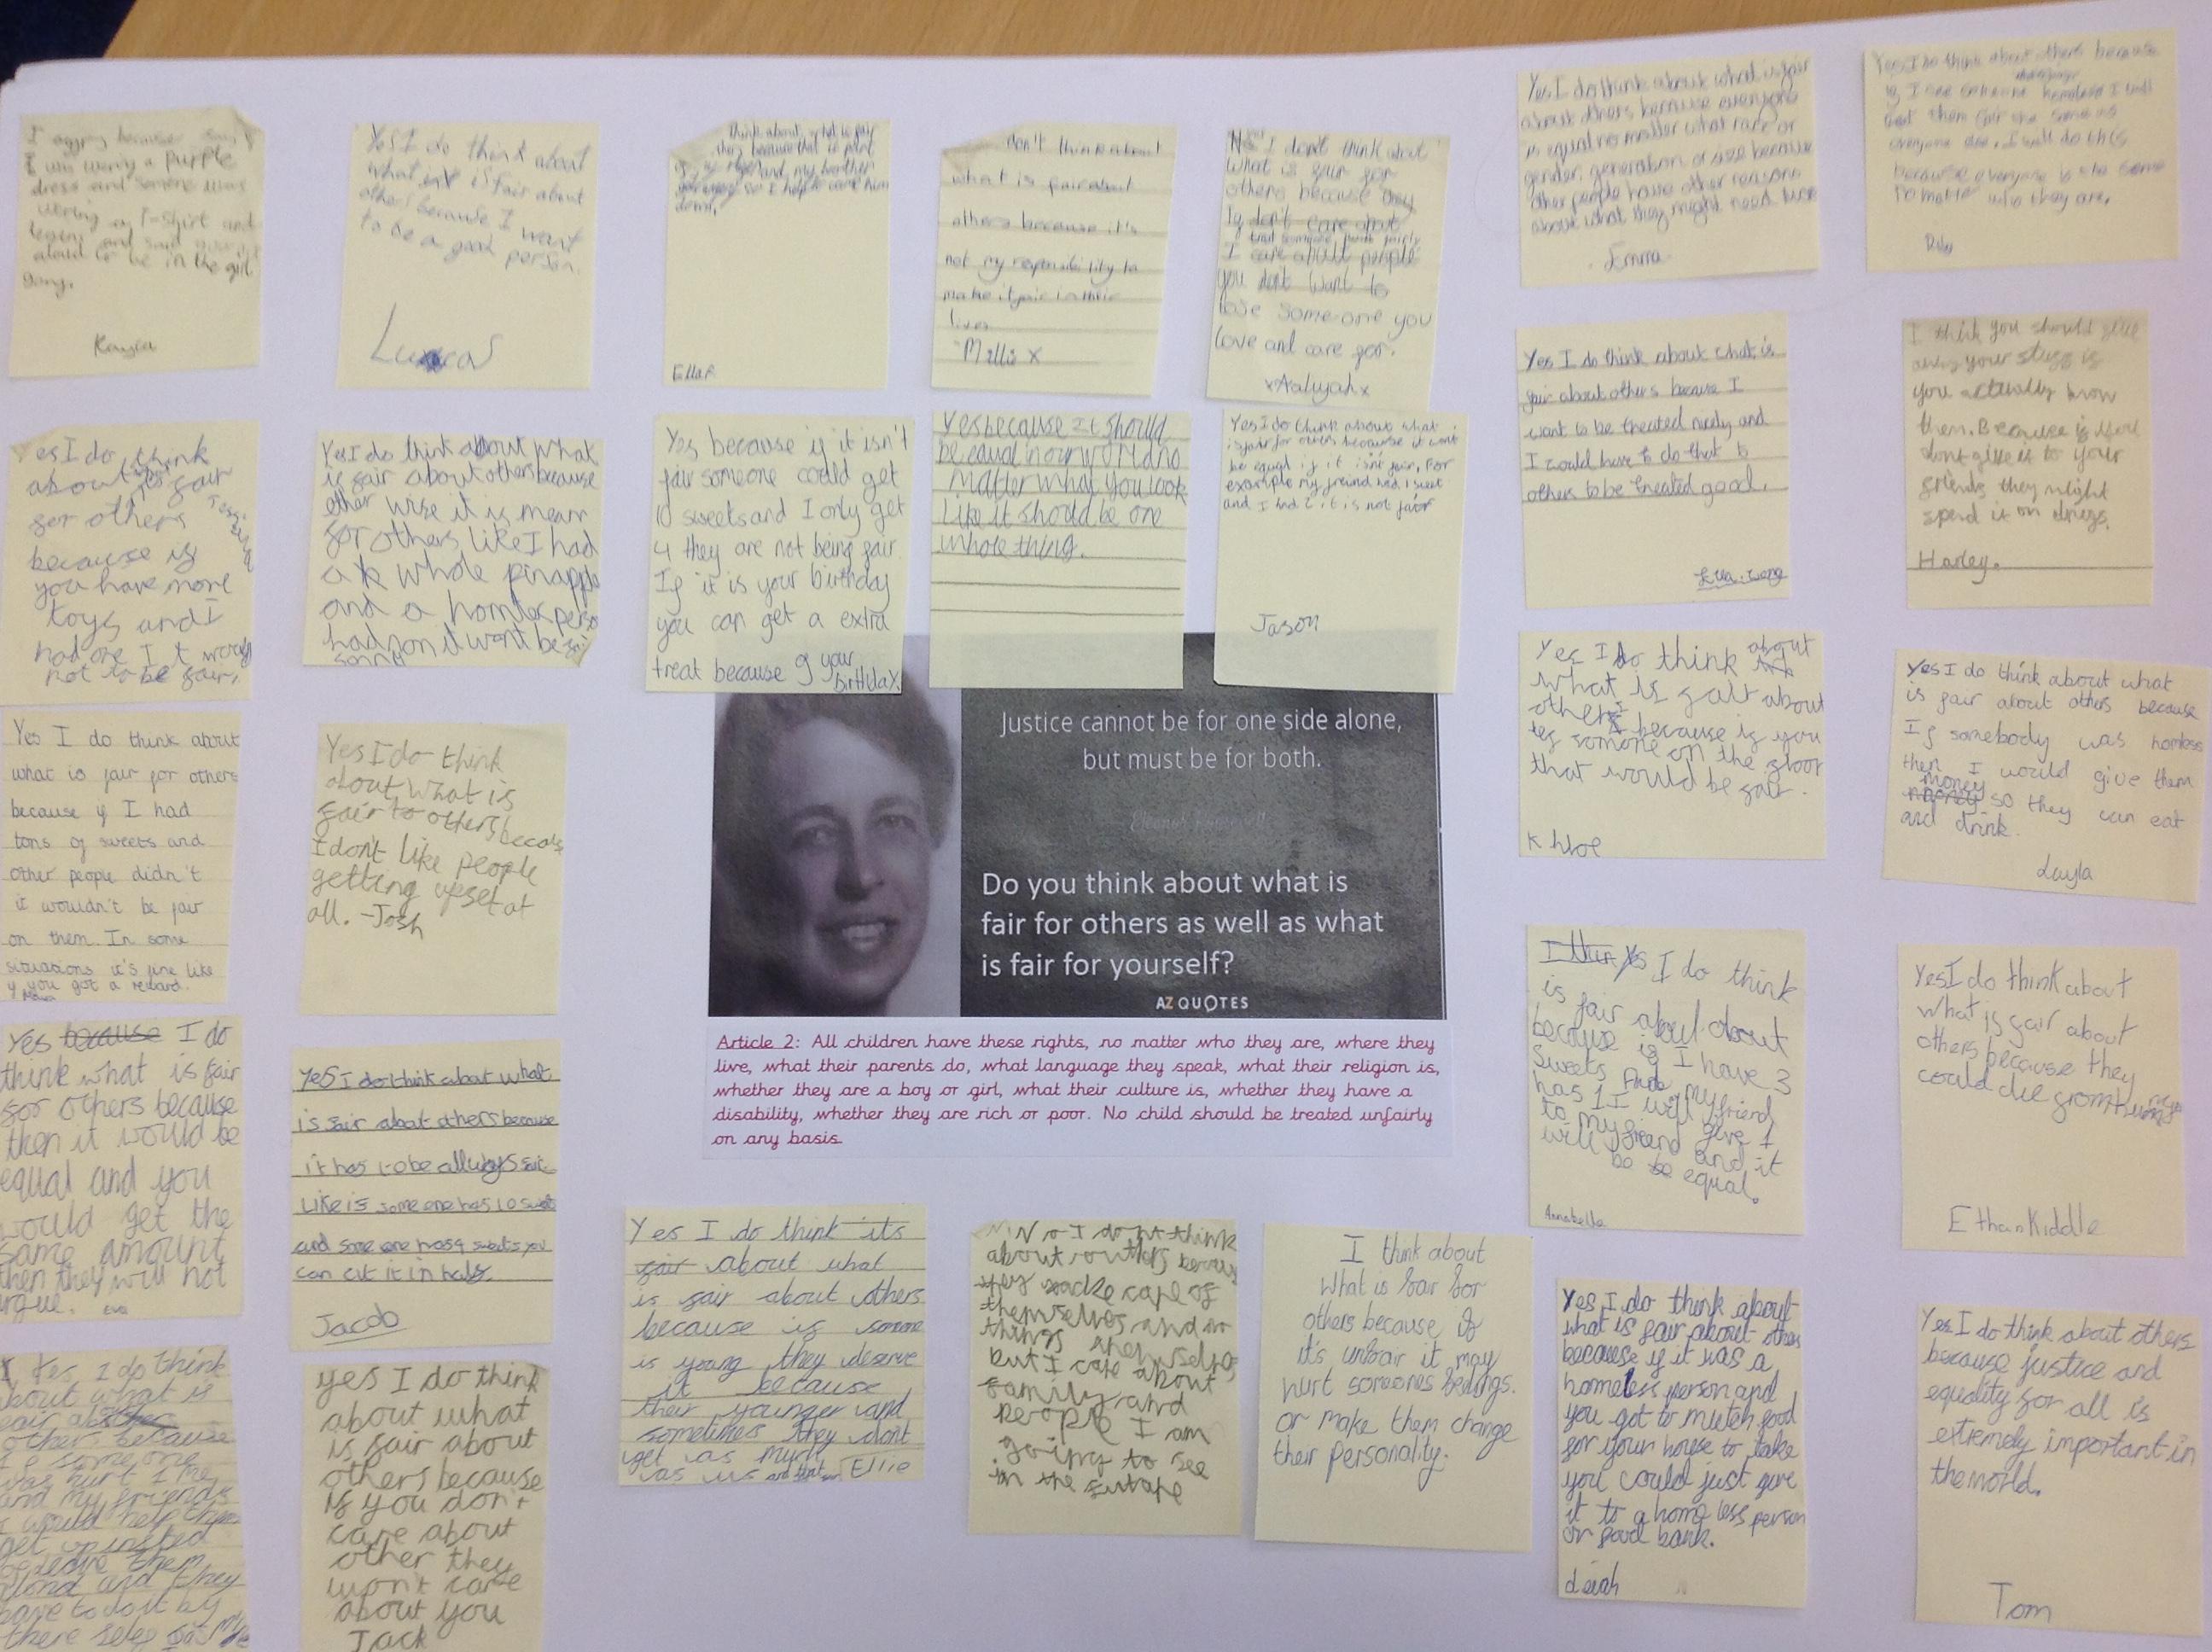 I
because say if
I was wering a purple
dress and somone was
wering a T-Shirt and
legens and said your not
aloud to be in the girl
gang.
Kayla
Yes I do think about
what is fair about
others because I want
to be a good person.
Lucas
think about what is fair
because that is
and my brother
so I help to calm him
down.
Ella F
don't think about
what is fair about
others because it's
not my reponsibility to
make it fair in their
lives
Millie x
No I don't think about
what is fair for
others because they
I don't care about
I care about people
you don't want to
lose someone you
love and care for.
x Aaliyah x
Yes I do think about what is fair
about others because everyone
is equal no matter what race or
gender, generation or size because
other people have other reasons
about what they might need
Emma
Yes I do think about others because
if I see someone homeless I will
them fair the same as
everyone else, I will do this
because everyone is the same
no matter who they are,
Yes I do think
about fair
for others
because if
you have more
toys and I
had one I t would
not to be fair,
Yes I do think about what
is fair about others because
other wise it is mean
for others like I had
a whole pinapple
and a homles perso
had non it wont be
Yes because if it isn't
fair someone could get
10 sweets and I only get
4 they are not being fair.
If it is your birthday
you can get a extra
treat because of your
birthday.
Yes because It should
be equal in our world no
matter what you look
like it should be one
whole thing.
Yes I do think about what
is fair for others because it wont
be equal if it isn't fair, For
example my freind had 1 sweet
and I had 2 it is not fair
Jason
Yes I do think about what is
fair about others because I
want to be treated nicely and
I would have to do that to
others to be treated good.
I think you should give
away your stuff if
you actually know
them. Because if you
dont give it to your
friends they might
spend it on drugs.
Harley.
Yes I do think about what
what is fair about
others because if you
somone on the floor
that would be fair.
Khloe
Yes I do think about what
is fair about others because
If somebody was homless
then I would give them
money so they can eat
and drink.
Layla
Yes I do think about
what is fair for others
because if I had
tons of sweets and
other people didn't
it wouldn't be fair
on them. In some
situations it's fine like
if you got a reward.
Yes I do think
about what is
fair to others becase
I don't like people
getting upset at
all. -Josh
Justice cannot be for one side alone,
but must be for both.
Do you think about what is
fair for others as well as what
is fair for yourself?
AZ QUOTES
Article 2: All children have these rights, no matter who they are, where they
live, what their parents do, what language they speak, what their religion is,
whether they are a boy or girl, what their culture is, whether they have a
disability, whether they are rich or poor. No child should be treated unfairly
on any basis
Yes I do think
is fair about about
because if I have 3
sweets my friend
has 1 I will give 1
to my friend and it
will be equal.
Annabelle
Yes I do think about
what is fair about
others because they
could die from
Ethan Kiddle
Yes because I do
think what is fair
for others because
then it would be
equal and you
would get the
same amount
then they will not
argue. Eva
Yes I do think about what
is fair about others because
it has to be allways fair
Like if some one has 10 sweets
and some one has 4 sweets you
can cut it in half.
Jacob
Yes I do think its
fair about what
is fair about others
because if some
is young they deserve
it because
their younger and
sometimes they dont
get as much
as us Ellie
No I do nt think
about others becaus
they take care of
themselves and do
things themselfs
but I care about
family and
people I am
going to see
in the future
I think about
what is fair for
others because if
it's unfair it may
hurt someones feelings.
or make them change
their personality.
Yes I do think about
what is fair about others
because if it was a
homeless person and
you got to mutch food
for your house to take
you could just give
it to a home less person
or food bank.
Leiah
Yes I do think about others
because justice and
equality for all is
extremely important in
the world.
Tom
Yes I do think
about what is
fair about
other because
if someone
was hurt I me
and my friends
I would help them
get up insted
of leave them
alond and they
have to do it by
there self
yes I do think
about what
is fair about
others because
If you don't
care about
other they
won't care
about you
Jack